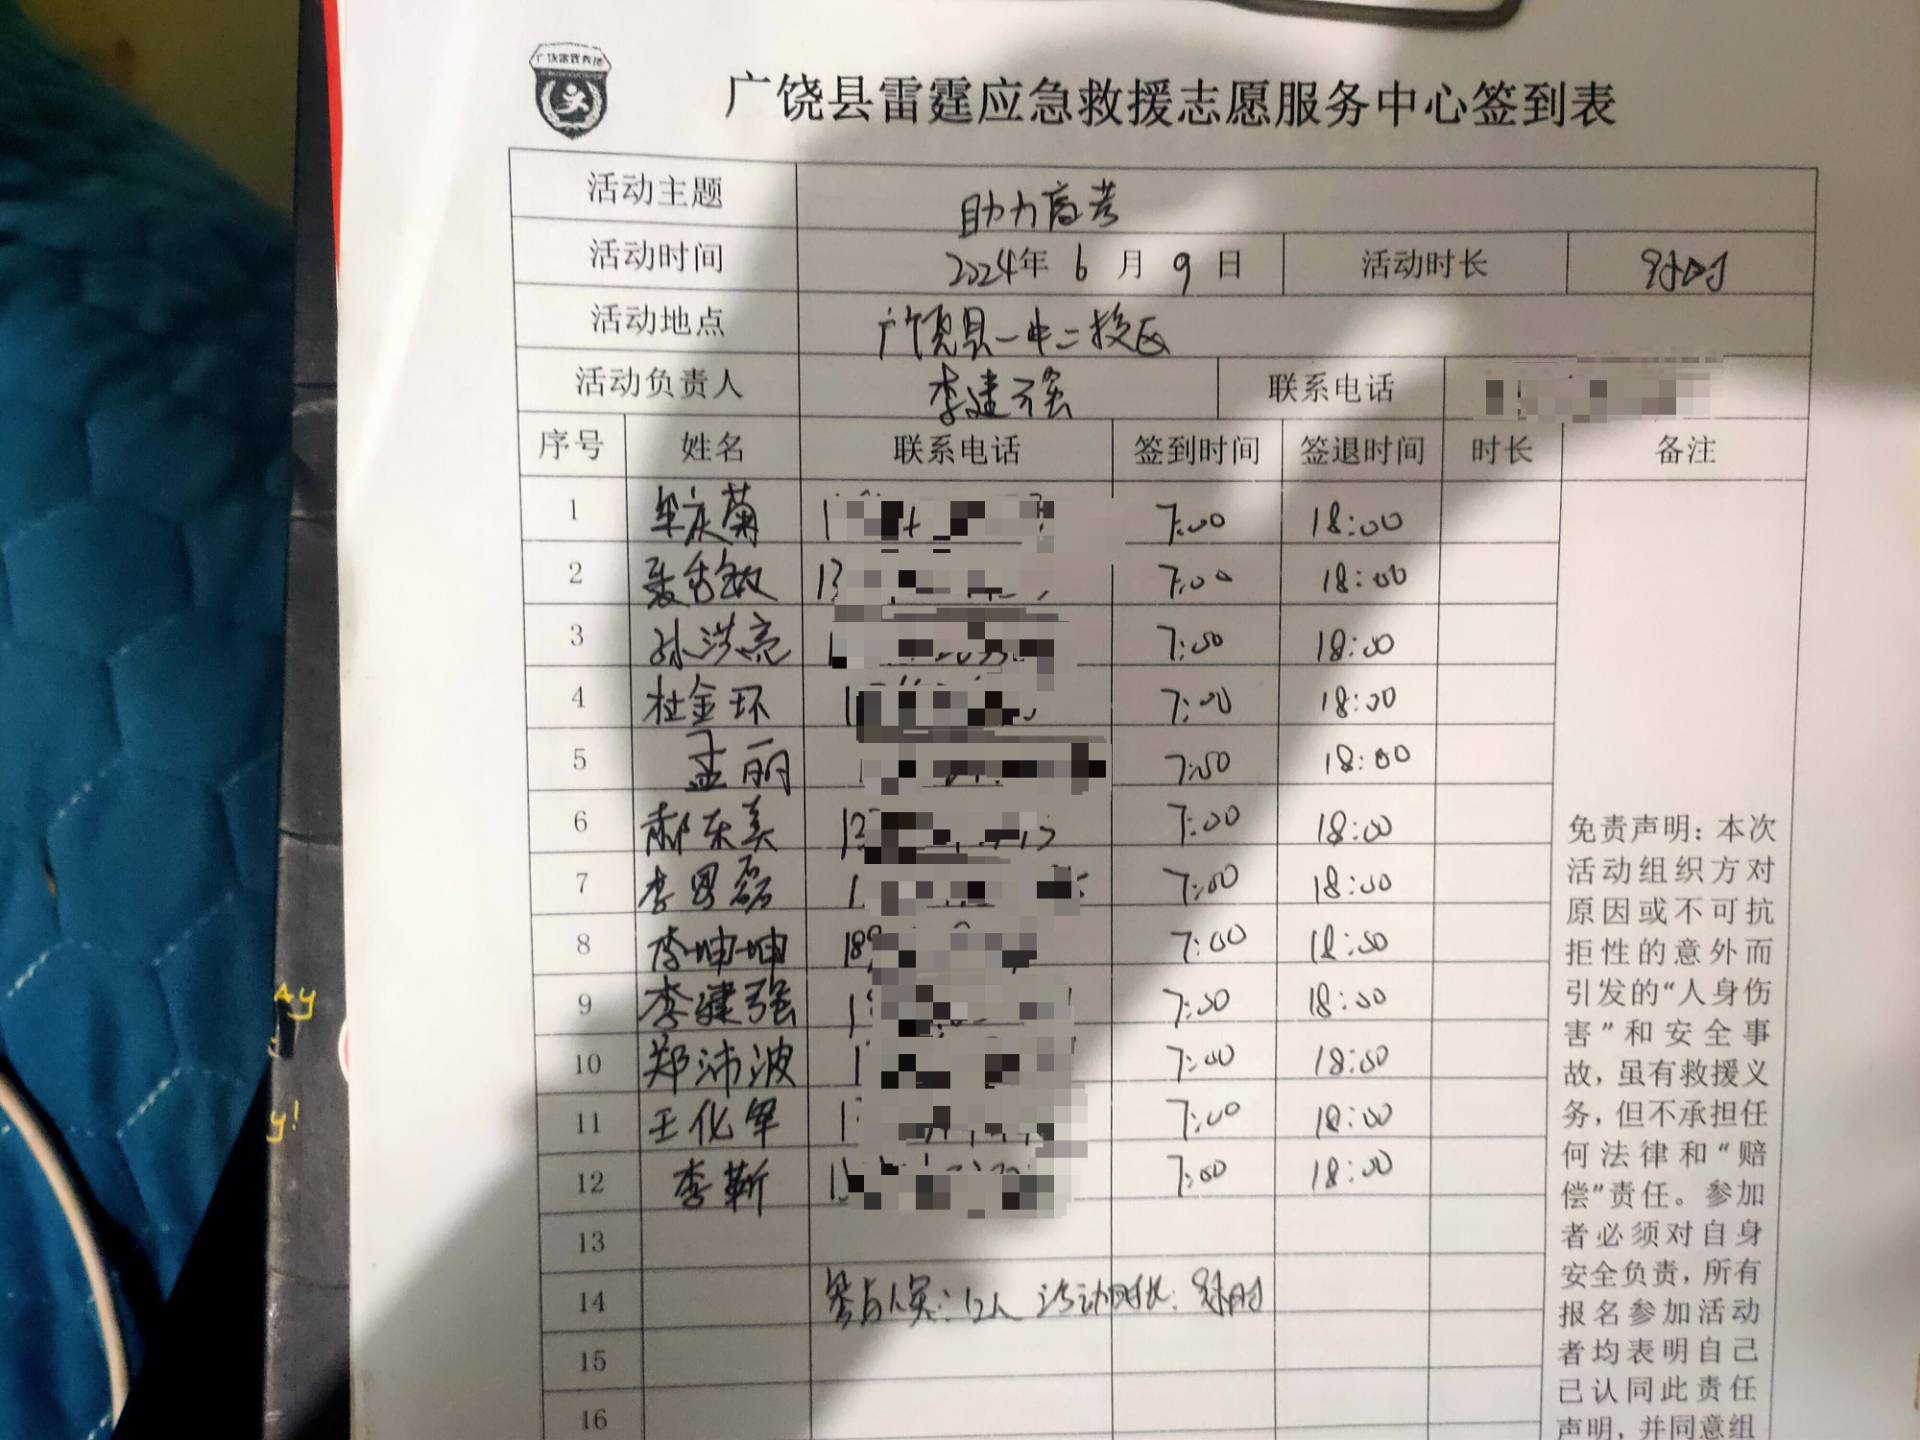 广饶县雷霆应急救援志愿服务中心签到表
活动主题 助力高考
活动时间 2024年 6 月 9 日 活动时长
活动地点 广饶县一中二校区
活动负责人 李建强 联系电话
序号 姓名 联系电话 签到时间 签退时间 时长 备注
1 庆菊 7:00 18:00
2 聂秀敏 7:00 18:00
3 孙洪亮 7:00 18:00
4 杜金环 7:00 18:00
5 孟丽 7:00 18:00
6 郝东美 7:00 18:00
7 李磊 7:00 18:00
8 李坤坤 189 7:00 18:00
9 李建强 7:00 18:00
10 郑沛波 7:00 18:00
11 王化军 7:00 18:00
12 李靳 7:00 18:00
13
14 参与人员:12人 活动时长:
15
16
免责声明：本次
活动组织方对
原因或不可抗
拒性的意外而
引发的“人身伤
害”和安全事
故，虽有救援义
务，但不承担任
何法律和“赔
偿”责任。参加
者必须对自身
安全负责，所有
报名参加活动
者均表明自己
己认同此责任
声明，并同意组
Ay
y!